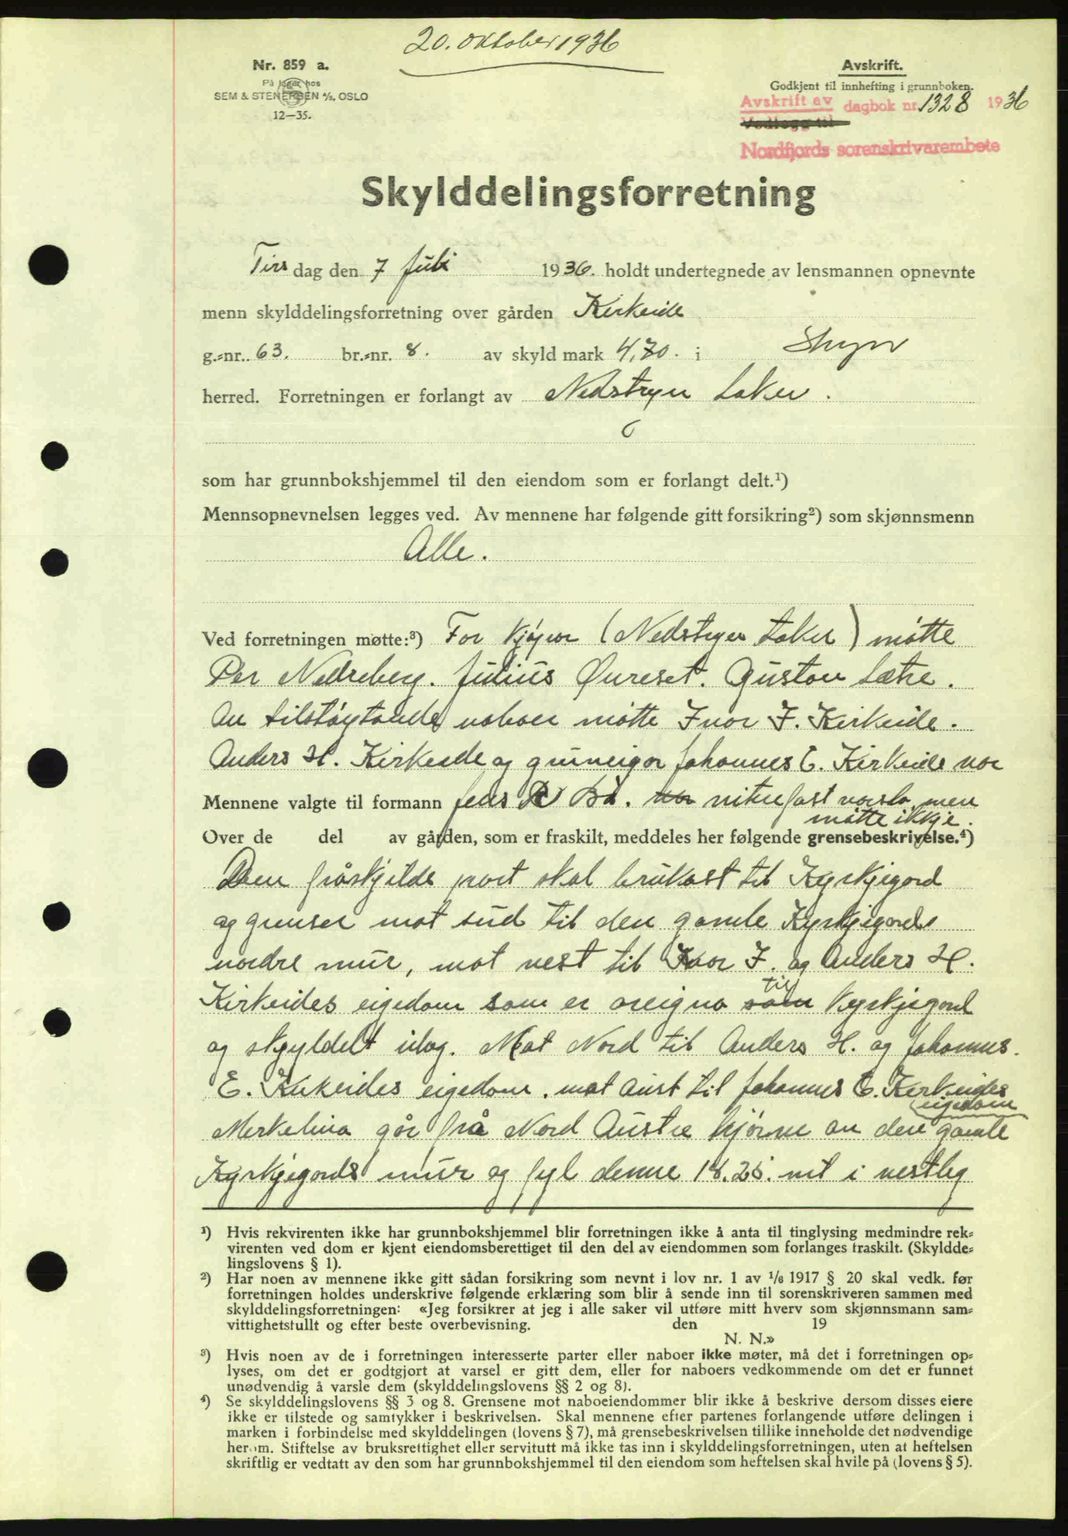 20. oktober 1936
Nr. 859 a.
På lager hos
SEM & STENERSEN A/S, OSLO
12—35.
Avskrift.
Godkjent til innhefting i grunnboken.
Avskrift av dagbok nr. 1328 1936
Vedlegg til
Nordfjords sorenskrivarembete
Skylddelingsforretning
Tirsdag den 7 juli 1936. holdt undertegnede av lensmannen opnevnte
menn skylddelingsforretning over gården Kirkeide
g.=nr. 63. br.=nr. 8. av skyld mark 4,70. i Stryn
herred. Forretningen er forlangt av Nedstryn sokn.
som har grunnbokshjemmel til den eiendom som er forlangt delt.¹)
Mennsopnevnelsen legges ved. Av mennene har følgende gitt forsikring²) som skjønnsmenn
Alle.
Ved forretningen møtte:³) For kjøpar (Nedstryn sokn) møtte
Per Nedreberg. Julius Øvreset. Gustav Sætre.
Av tilstøytande naboer møtte Ivar J. Kirkeide.
Anders H. Kirkeide og grunneigar Johannes E. Kirkeide var
Mennene valgte til formann Jens R Bø. var vitrefast varsla, men
møtte ikkje.
Over de del av gården, som er fraskilt, meddeles her følgende grensebeskrivelse.⁴)
Den fråskjilde part skal brukast til Kyrkjegord
og grenser mot sud til den gamle Kyrkjegords
nordre mur, mot vest til Ivar J. og Anders H.
Kirkeides eigedom som er oreigna som til Kyrkjegord
og skyldelt idag. Mot Nord til Anders H. og Johannes.
E. Kirkeides eigedom. mot aust til Johannes E. Kirkeides
eigedom
Merkelina går frå Nord Austre hjørne av den gamle
Kyrkjegords mur og fyl denne 18.25. mt i vestleg
¹) Hvis rekvirenten ikke har grunnbokshjemmel blir forretningen ikke å anta til tinglysing medmindre rek=
virenten ved dom er kjent eiendomsberettiget til den del av eiendommen som forlanges fraskilt. (Skyldde=
lingslovens § 1).
²) Har noen av mennene ikke gitt sådan forsikring som nevnt i lov nr. 1 av 1/6 1917 § 20 skal vedk. før
forretningen holdes underskrive følgende erklæring som blir å sende inn til sorenskriveren sammen med
skylddelingsforretningen: «Jeg forsikrer at jeg i alle saker vil utføre mitt hverv som skjønnsmann sam=
vittighetsfullt og efter beste overbevisning. den 19
N. N.»
³) Hvis noen av de i forretningen interesserte parter eller naboer ikke møter, må det i forretningen op=
lyses, om det er godtgjort at varsel er gitt dem, eller for naboers vedkommende om det er funnet
unødvendig å varsle dem (skylddelingslovens §§ 2 og 8).
⁴) Se skylddelingslovens §§ 3 og 8. Grensene mot naboeiendommer blir ikke å beskrive dersom disses eiere
ikke er tilstede og samtykker i beskrivelsen. Skal mennene efter partenes forlangende utføre delingen i
marken i forbindelse med skylddelingen (lovens § 7), må grensebeskrivelsen tillike inneholde det nødvendige
herom. Stiftelse av bruksrettighet eller servitutt må ikke tas inn i skylddelingsforretningen, uten at heftelsen
skriftlig er vedtatt av den som har grunnbokshjemmel til den eiendom som heftelsen skal hvile på (lovens § 5).